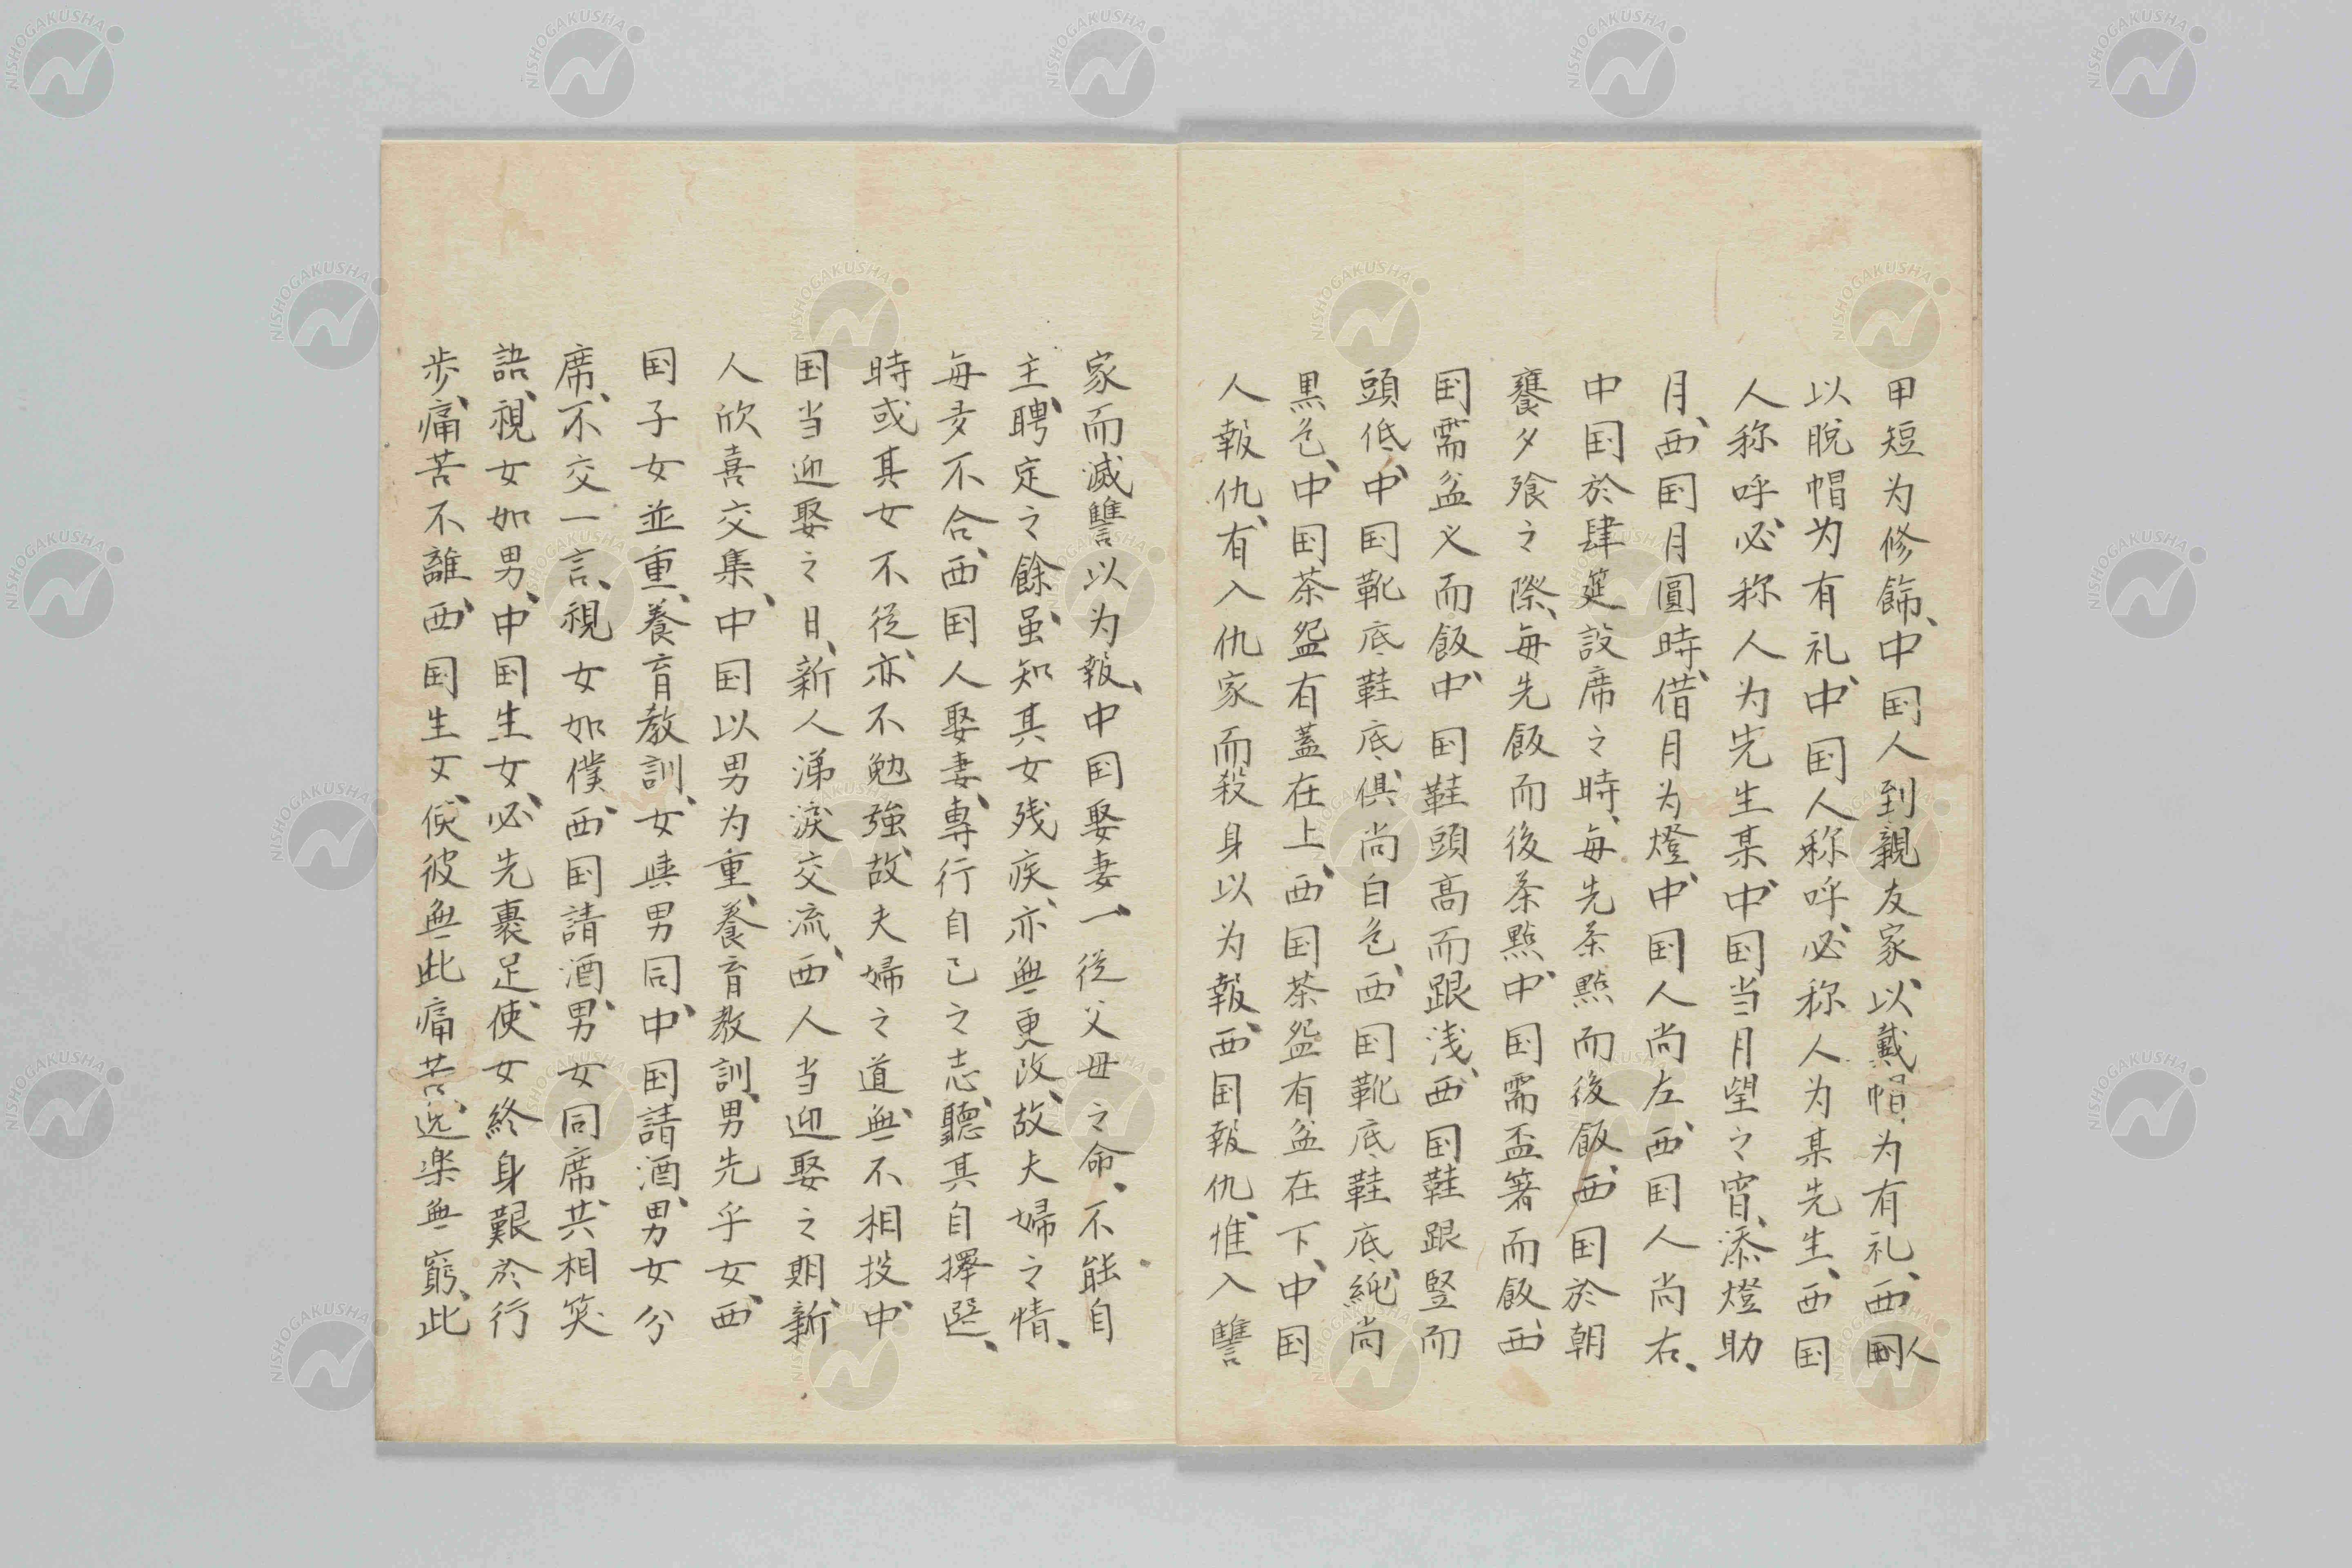 甲短为修餙、中国人到親友家、以戴帽为有礼、西国人
以脱帽为有礼、中国人称呼必称人为某先生、西国
人称呼必称人为先生某、中国当月望之宵、添燈助
月、西国月圓時、借月为燈、中国人尚左、西国人尚右、
中国於肆筵設席之時、每先茶㸃而後飯、西国於朝
饔夕飱之際、每先飯而後茶㸃、中国需盃箸而飯、西
国需盆义而飯、中国鞋頭高而跟浅、西国鞋跟竪而
頭低、中国靴底鞋底俱尚白色、西国靴底鞋底純尚
黒色、中国茶盌有蓋在上、西国茶盌有盆在下、中国
人報仇、有入仇家而殺身以为報、西国報仇、惟入讐
家而滅讐以为報、中国娶妻一従父母之命、不能自
主、聘定之餘、虽知其女残疾、亦無更改、故夫婦之情、
每多不合、西国人娶妻、專行自己之志、聽其自擇選、
時或其女不従、亦不勉強、故夫婦之道、無不相投、中
国当迎娶之日、新人涕淚交流、西人当迎娶之期、新
人欣喜交集、中国以男为重、養育教訓、男先乎女、西
国子女並重、養育教訓、女與男同、中国請酒、男女分
席、不交一言、視女如僕、西国請酒、男女同席、共相笑
語、視女如男、中国生女、必先裹足、使女終身艱於行
歩、痛苦不離、西国生女、使彼無此痛苦、逸楽無窮、此
NISHOGAKUSHA